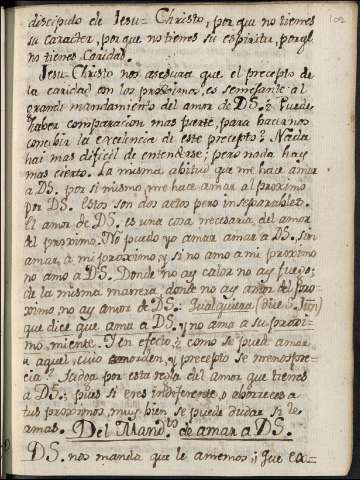 102
discipulo de Jesu-Christo, por que no tienes
su caracter, por que no tienes su espiritu, porq.e
no tienes Caridad.
Jesu-Christo nos asegura que el precepto de
la caridad con los proximos, es semejante al
grande mandamiento del amor de DS.: Puede
haber comparacion mas fuerte, para hacernos
concibir la excelencia de este precepto? Nada
hai mas dificil de entenderse; pero nada hay
mas cierto. La misma abitud que me hace amar
a DS. por si mismo, me hace amar al proximo
por DS. Estos son dos actos pero inseparables.
El amor de DS. es una cosa necesaria del amor
del proximo. No puedo yo amar amar a DS. sin
amar a mi proximo, y si no amo a mi proximo
no amo a DS. Donde no ay calor no ay fuego;
de la misma manera, donde no ay amor del pro-
ximo, no ay amor de DS.: Qualquiera (dice S. Jun)
que dice que ama a DS. y no ama a su proxi-
mo, miente. Y en efecto, como se puede amar
a aquel, cuio orden, y precepto se menospre-
cia? Juzga por esta regla del amor que tienes
a DS.; pues si eres indiferente, o aborreces a
tus proximos, muy bien se puede dudar si le
amas.
Del Mand.to de amar a DS.
DS. nos manda que le amemos; Que ex-